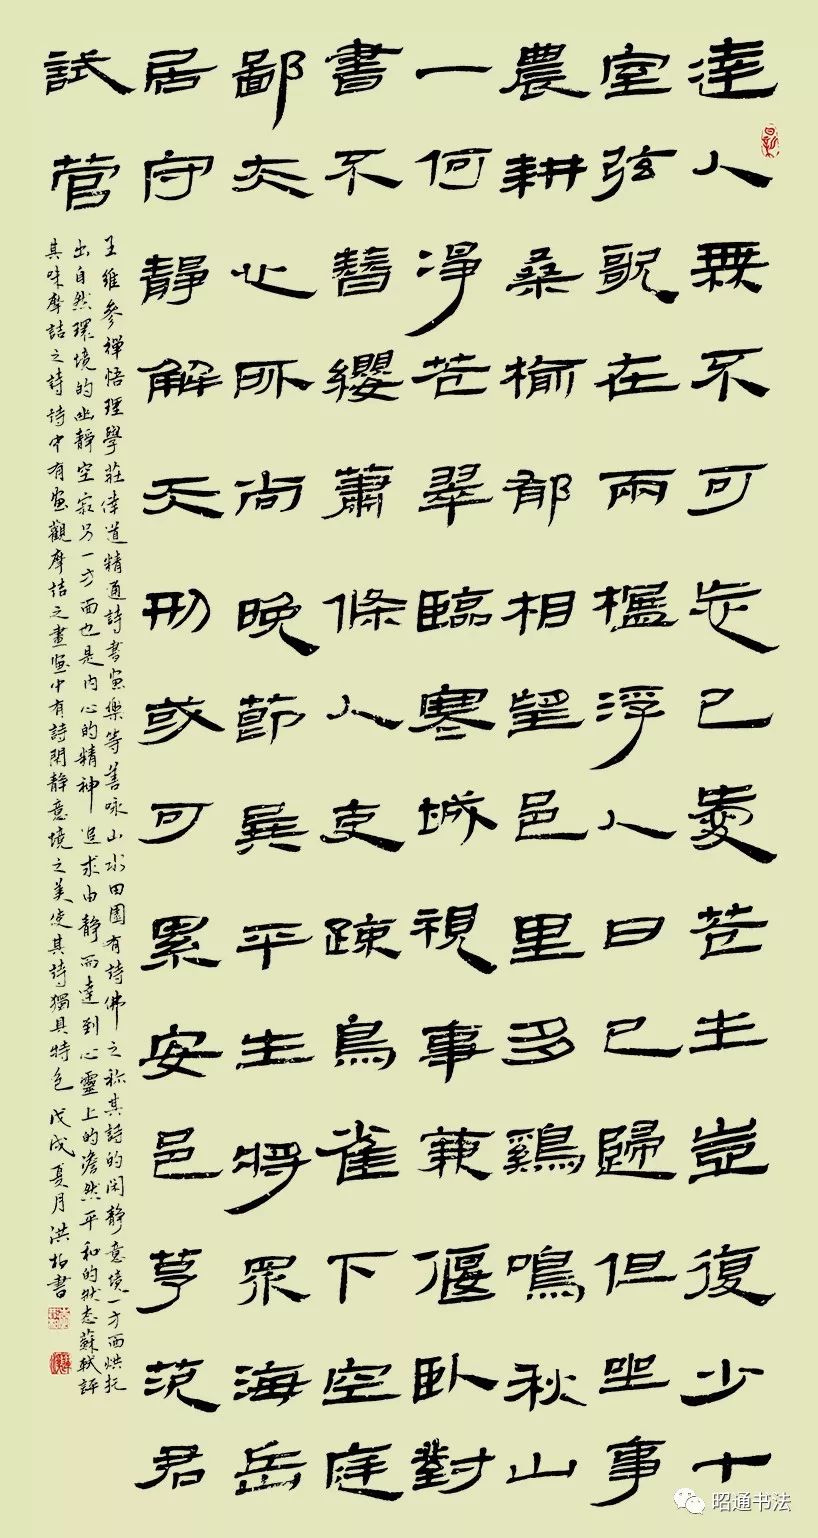 達人無不可忘己愛蒼生豈復少十
室弦歌在兩楹浮人日已歸但坐事
農耕桑榆郁相望邑里多鷄鳴秋山
一何淨蒼翠臨寒城視事兼偃臥對
書不簪纓蕭條人吏疎鳥雀下空庭
鄙夫心所尚晚節異平生將眾海岳
居守靜解天刑或可累安邑茅茨君
試營
王維參禪悟理學莊信道精通詩書畫樂等善咏山水田園有詩佛之称其詩的閑静意境一方面烘托
出自然環境的幽靜空寂另一方面也是内心的精神追求由静而達到心靈上的澹然平和的狀态蘇軾評
其味摩詰之詩詩中有畫觀摩詰之畫畫中有詩閑静意境之美使其詩獨具特色 戊戌夏月洪柏書
昭通书法